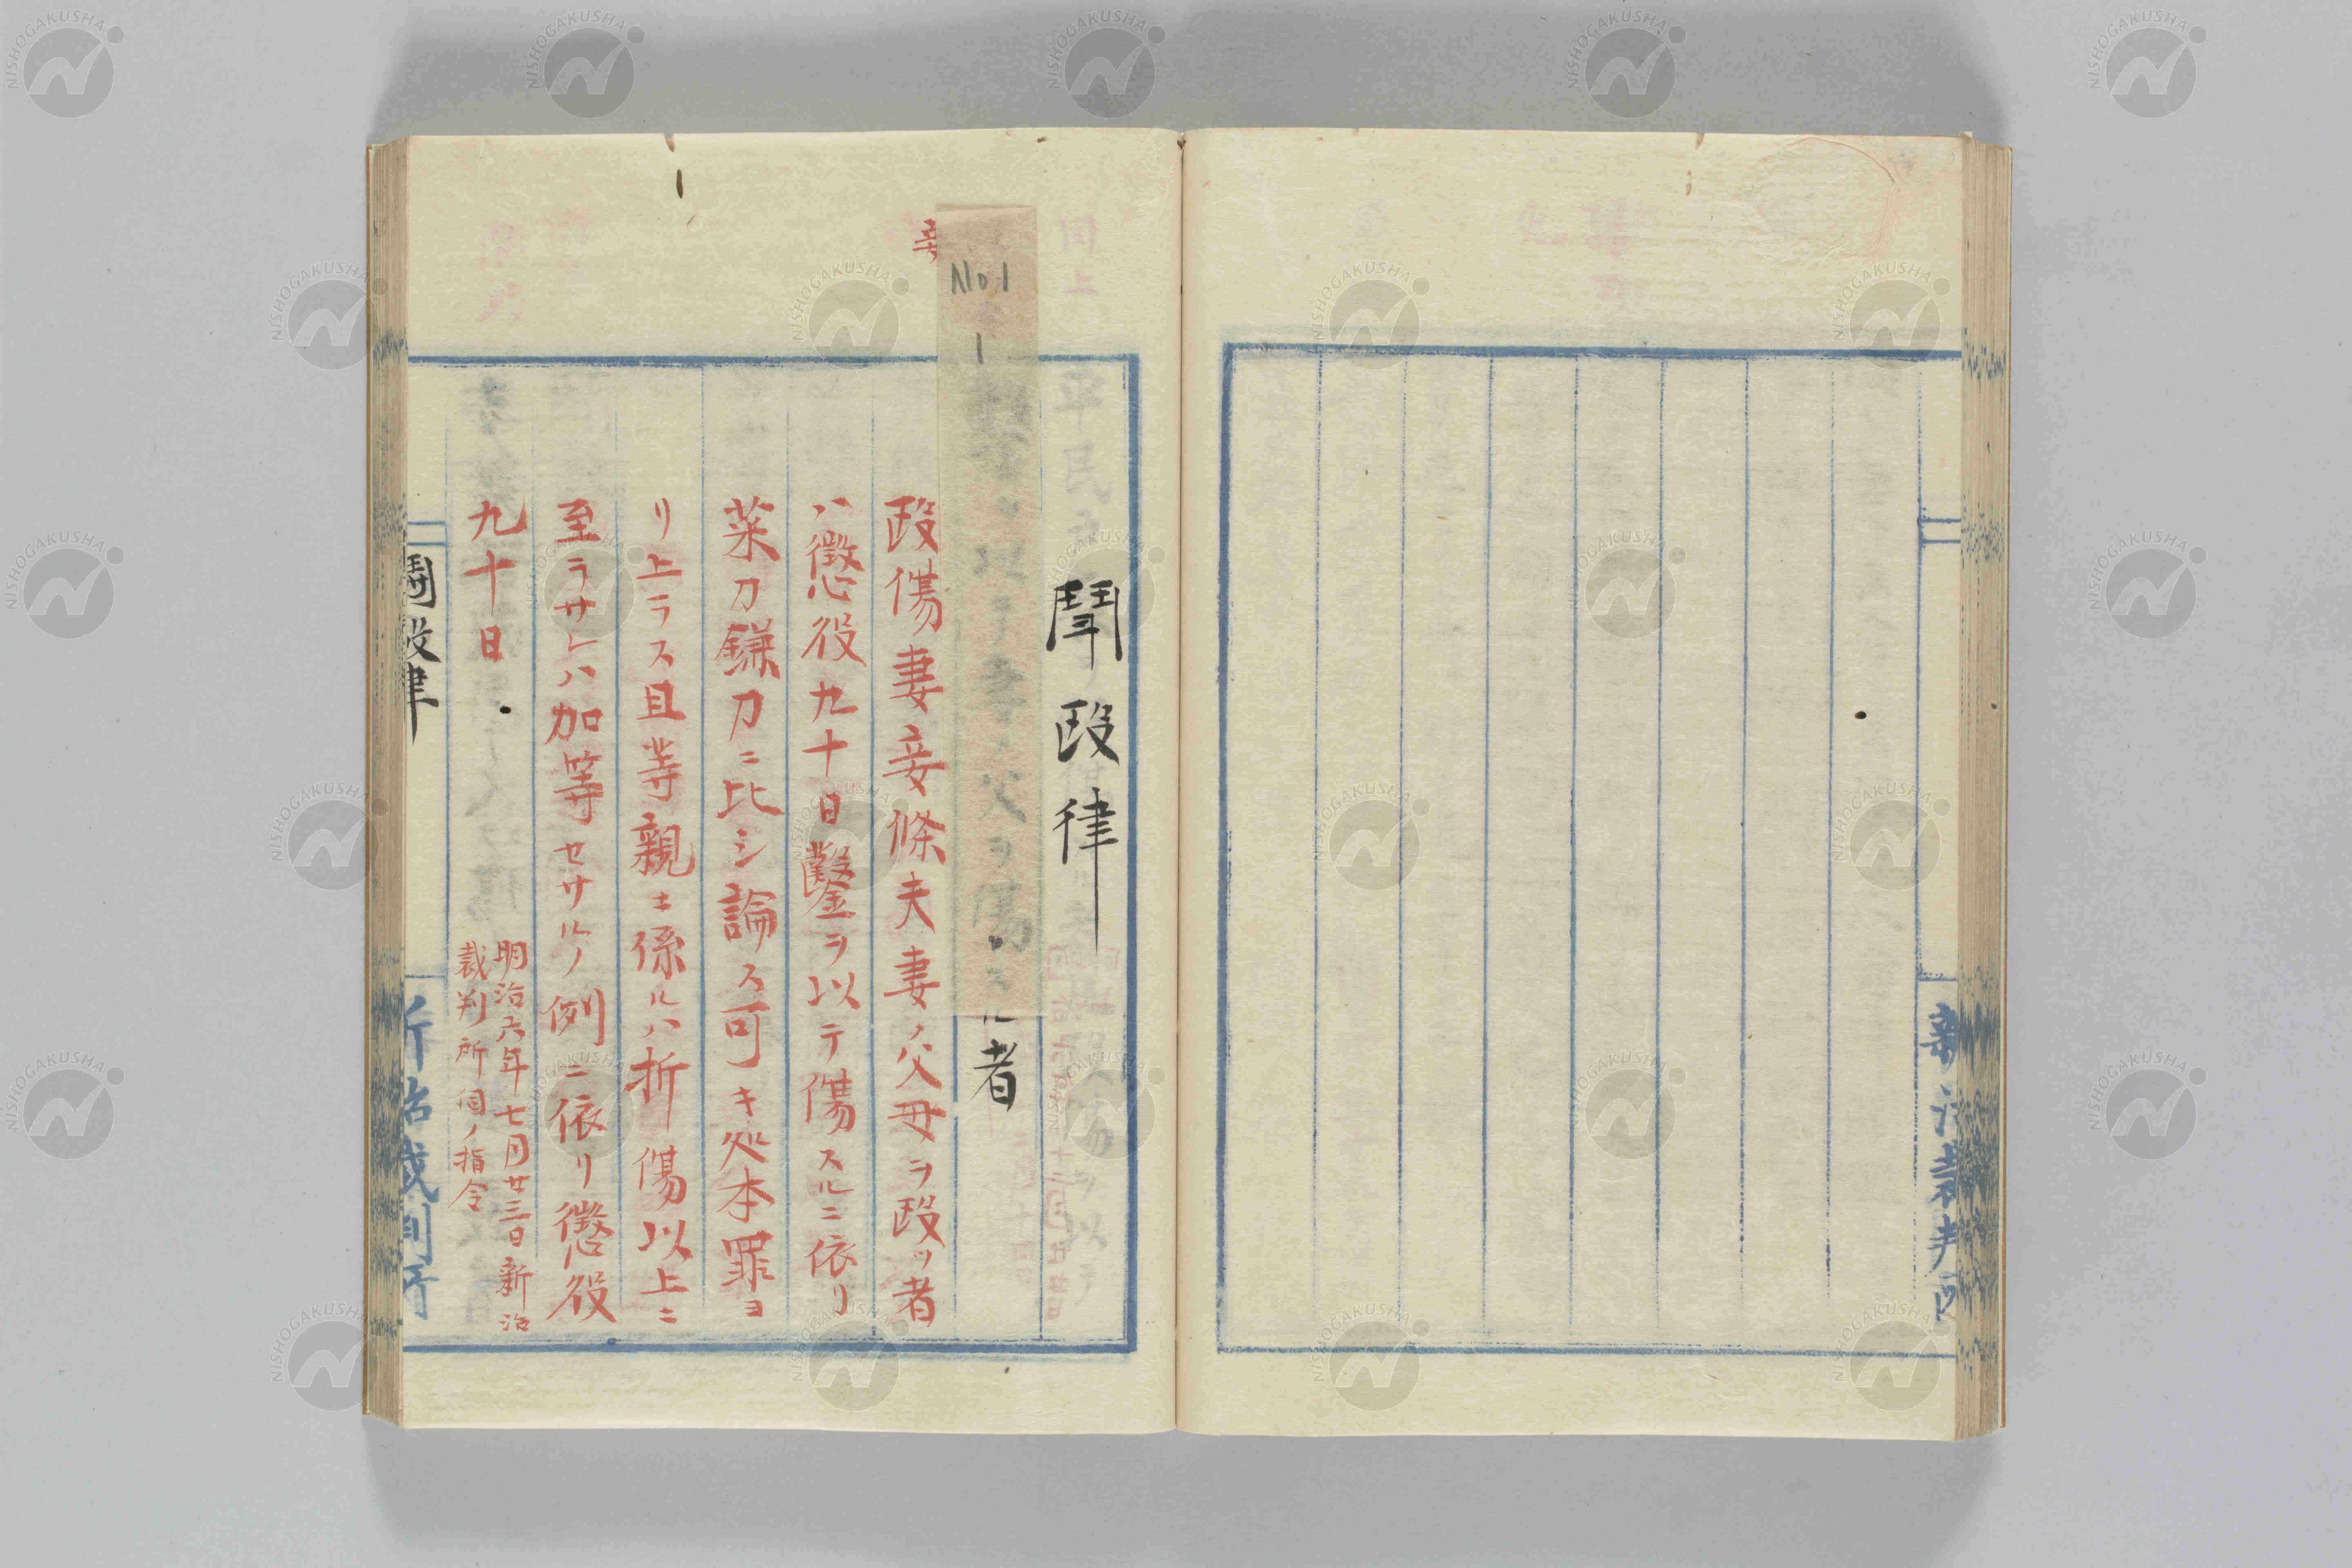 新治裁判所
闘殴律
鑿ヲ以テ妻ノ父ヲ傷スル者
No.1
1
妾
殴傷妻妾條夫妻ノ父母ヲ殴ツ者
ハ懲役九十日鑿ヲ以テ傷スルニ依リ
菜刀鎌刀ニ比シ論ス可キ処本罪ヨ
リ上ラス且等親ニ係ルハ折傷以上ニ
至ラサレハ加等セサルノ例ニ依リ懲役
九十日
明治六年七月廿三日新治
裁判所伺ノ指令
闘殴律
新治裁判所
NISHOGAKUSHA